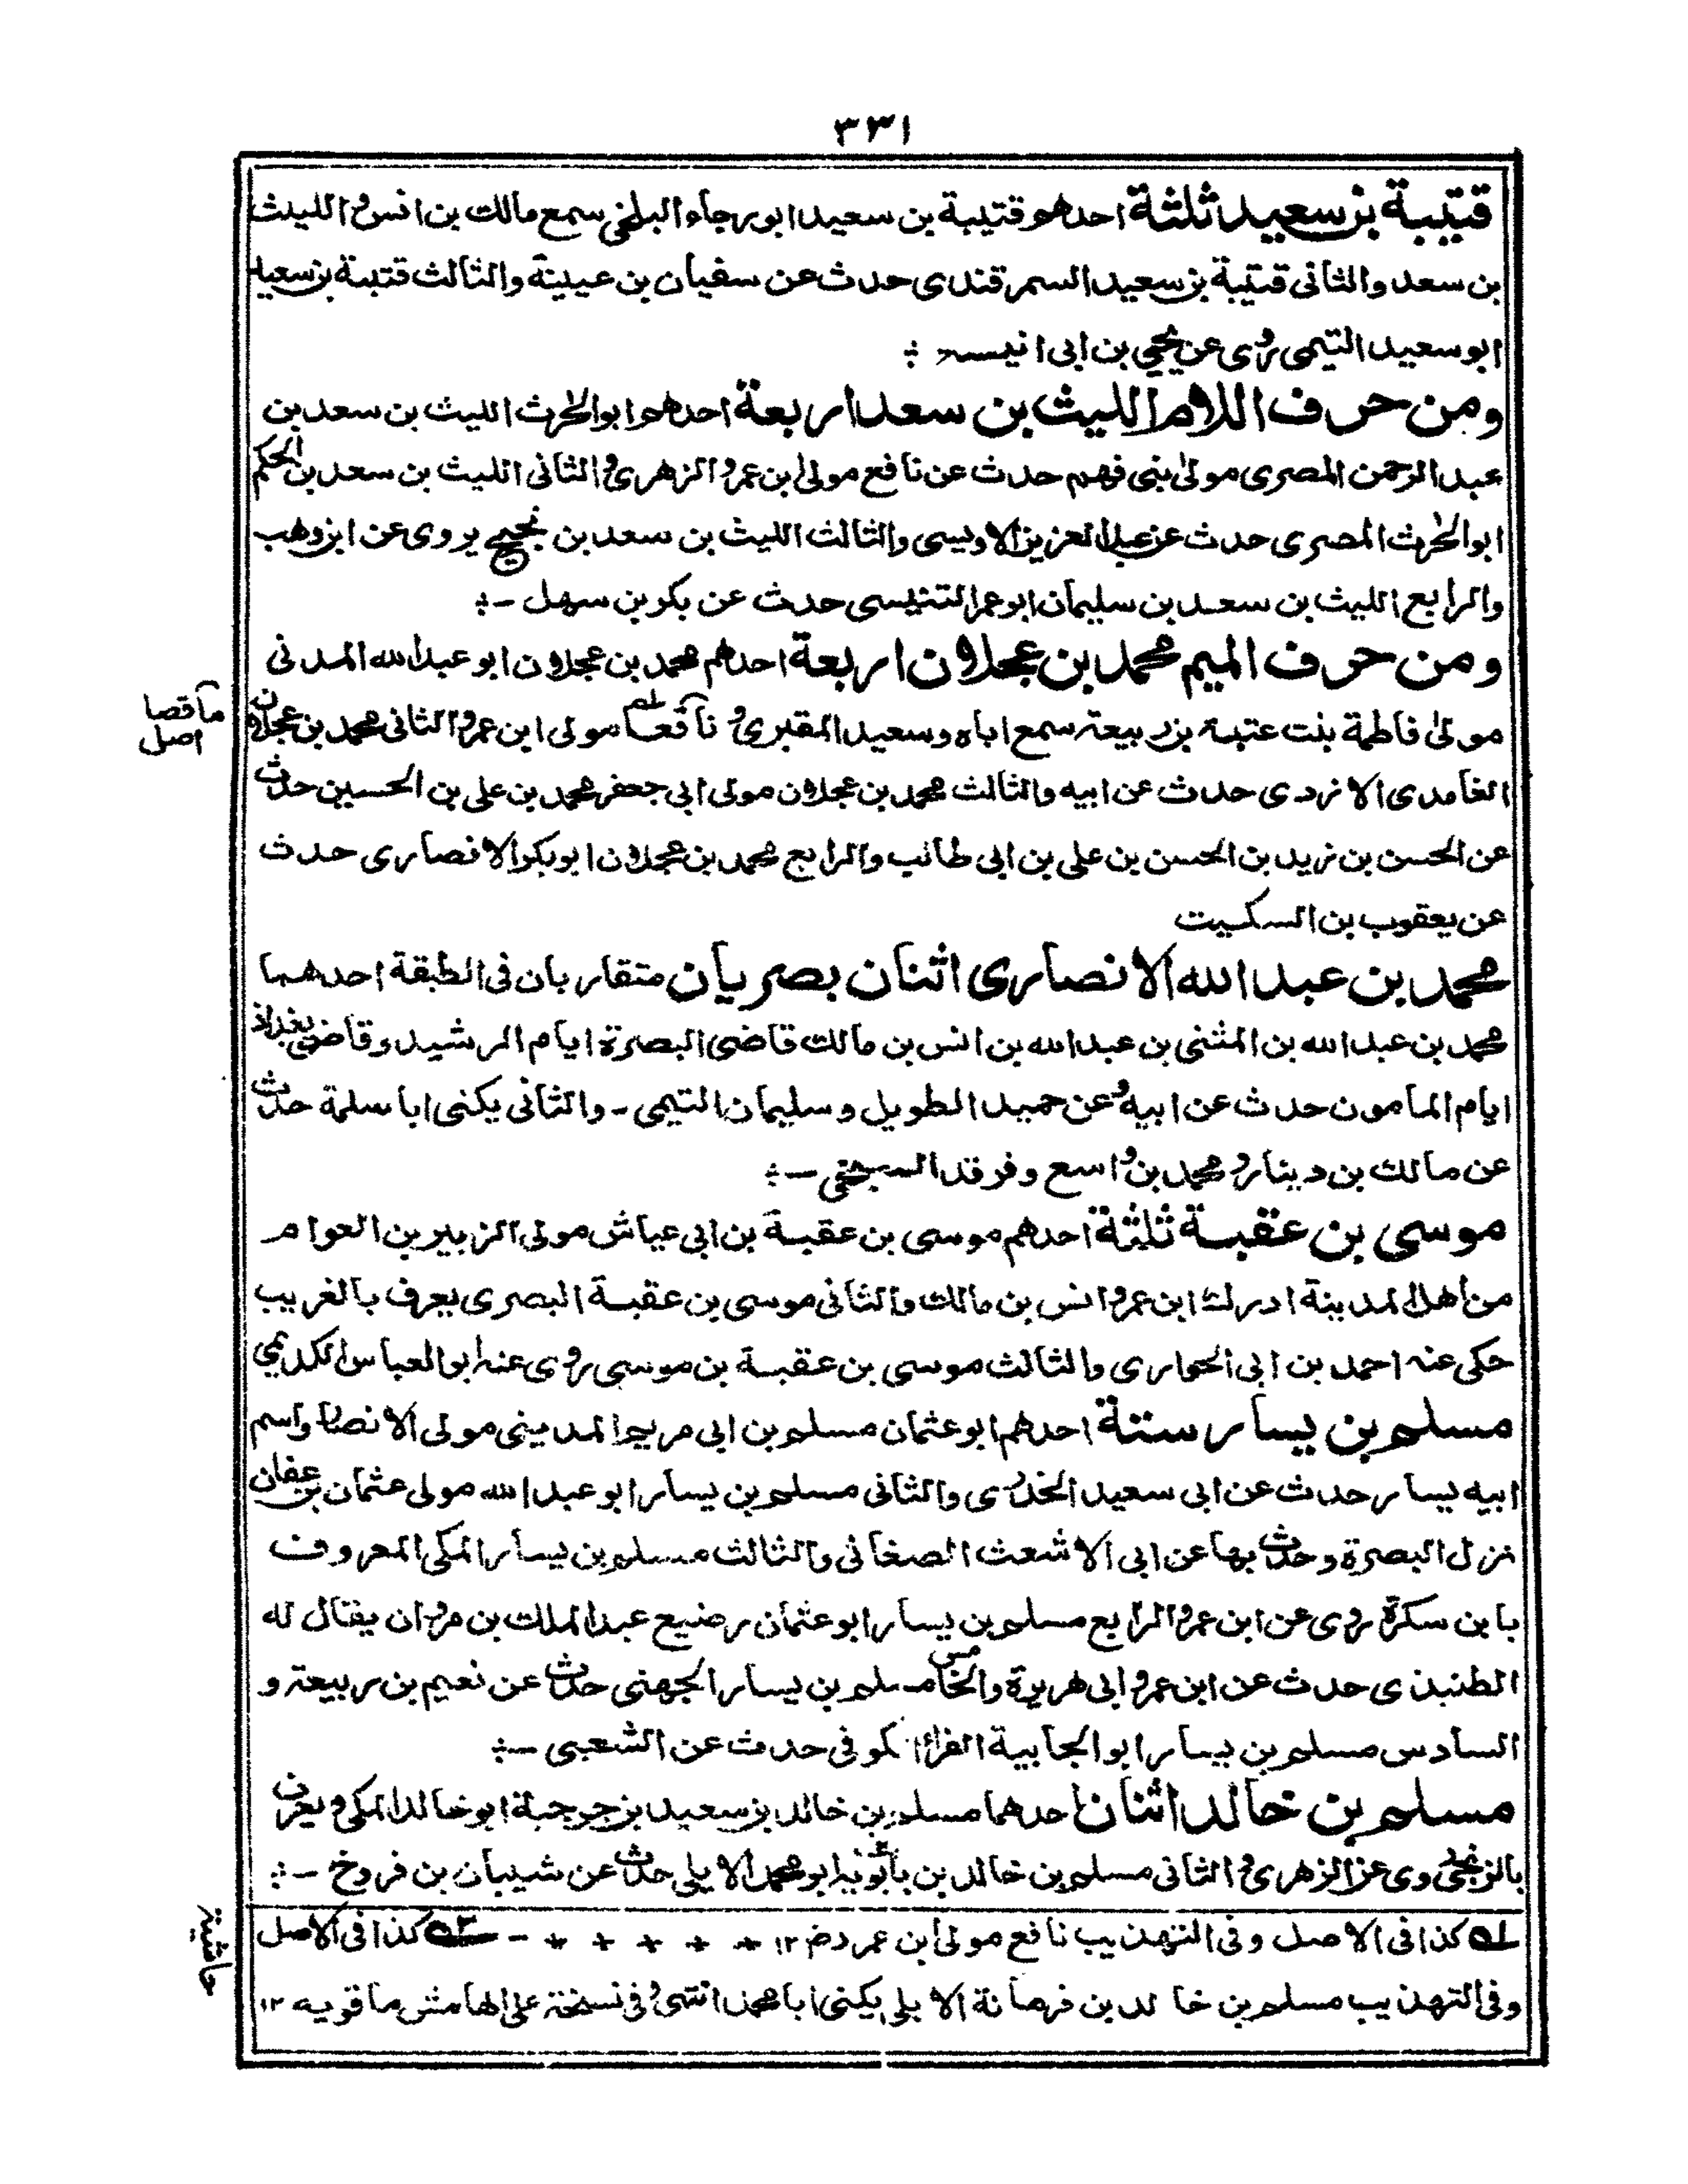 ٣٣١
قتيبة بن سعيد ثلثة احدهم قتيبة بن سعيد ابو رجاء البلخى سمع مالك بن انس و الليث
بن سعد والثانى قتيبة بن سعيد السمرقندى حدث عن سفيان بن عيينة والثالث قتيبة بن سعيد
ابو سعيد التيمى روى عن يحيى بن ابى انيسه ؞
ومن حرف اللام الليث بن سعد اربعة احدهم ابو الحرث الليث بن سعد بن
عبد الرحمن المصرى مولى بنى فهم حدث عن نافع مولى ابن عمر و الزهرى و الثانى الليث بن سعد بن الحكم
ابو الحرث المصرى حدث عن عبد العزيز الاويسى والثالث الليث بن سعد بن نجيح يروى عن ابن وهب
والرابع الليث بن سعد بن سليمان ابو عمر التنيسى حدث عن بكر بن سهل -؞
ومن حرف الميم محمد بن عجلان اربعة احدهم محمد بن عجلان ابو عبد الله المدنى
مولى فاطمة بنت عتبة بن ربيعة سمع اباه وسعيد المقبرى و نافعا مولى ابن عمر و الثانى محمد بن عجلان
الغامدى الازدى حدث عن ابيه والثالث محمد بن عجلان مولى ابى جعفر محمد بن على بن الحسين حدث
عن الحسن بن زيد بن الحسن بن على بن ابى طالب والرابع محمد بن عجلان ابو بكر الانصارى حدث
عن يعقوب بن السكيت
محمد بن عبد الله الانصارى اثنان بصريان متقاربان فى الطبقة احدهما
محمد بن عبد الله بن المثنى بن عبد الله بن انس بن مالك قاضى البصرة ايام الرشيد وقاضى بغداد
ايام المامون حدث عن ابيه و عن حميد الطويل وسليمان التيمى - والثانى يكنى ابا سلمة حدث
عن مالك بن دينار و محمد بن واسع وفرقد السبخى -؞
موسى بن عقبة ثلثة احدهم موسى بن عقبة بن ابى عياش مولى الزبير بن العوام
من اهل المدينة ادرك ابن عمر و انس بن مالك والثانى موسى بن عقبة البصرى يعرف بالغريب
حكى عنه احمد بن ابى الحوارى والثالث موسى بن عقبة بن موسى روى عنه ابو العباس الكديمى
مسلم بن يسار ستة احدهم ابو عثمان مسلم بن ابى مريم المدينى مولى الانصار واسم
ابيه يسار حدث عن ابى سعيد الخدرى والثانى مسلم بن يسار ابو عبد الله مولى عثمان بن عفان
نزل البصرة وحدث بها عن ابى الاشعث الصغانى والثالث مسلم بن يسار المكى المعروف
بابن سكرة روى عن ابن عمر و الرابع مسلم بن يسار ابو عثمان رضيع عبد الملك بن مروان يقال له
الطنبذى حدث عن ابن عمر و ابى هريرة والخامس مسلم بن يسار الجهنى حدث عن نعيم بن ربيعة و
السادس مسلم بن يسار ابو الجابية الفراء الكوفى حدث عن الشعبى -؞
مسلم بن خالد اثنان احدهما مسلم بن خالد بن سعيد بن جرجة ابو خالد المكى و يعرف
بالزنجى روى عن الزهرى و الثانى مسلم بن خالد بن ابو محمد الايلى حدث عن شيبان بن فروخ -؞
له كذا فى الاصل وفى التهذيب نافع مولى ابن عمر رض ١٢ * * * * * - ٢ه كذا فى الاصل
وفى التهذيب مسلم بن خالد بن فرمانة الايلى يكنى ابا محمد انتهى و فى نسخة على الهامش ماقويه ١٢
ماقصا
اصل
حاشية